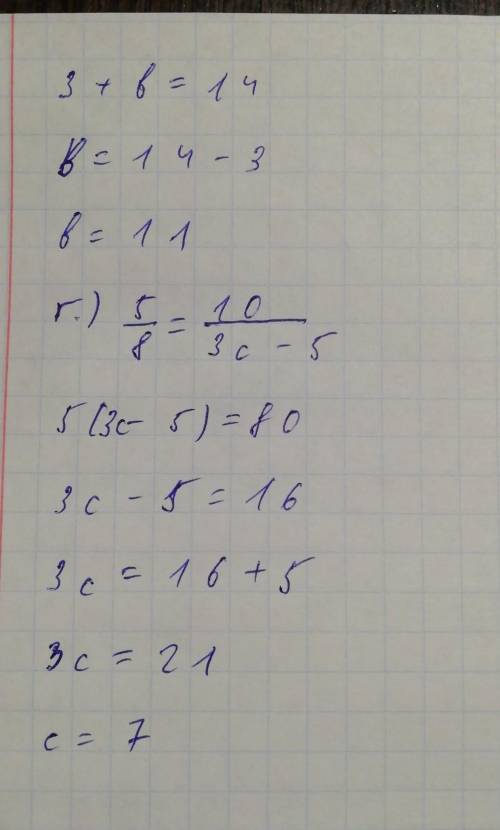 3 + в = 14
в = 14 - 3
в = 11
г.) 5/8 = 10/(3c - 5)
5(3c - 5) = 80
3c - 5 = 16
3c = 16 + 5
3c = 21
c = 7